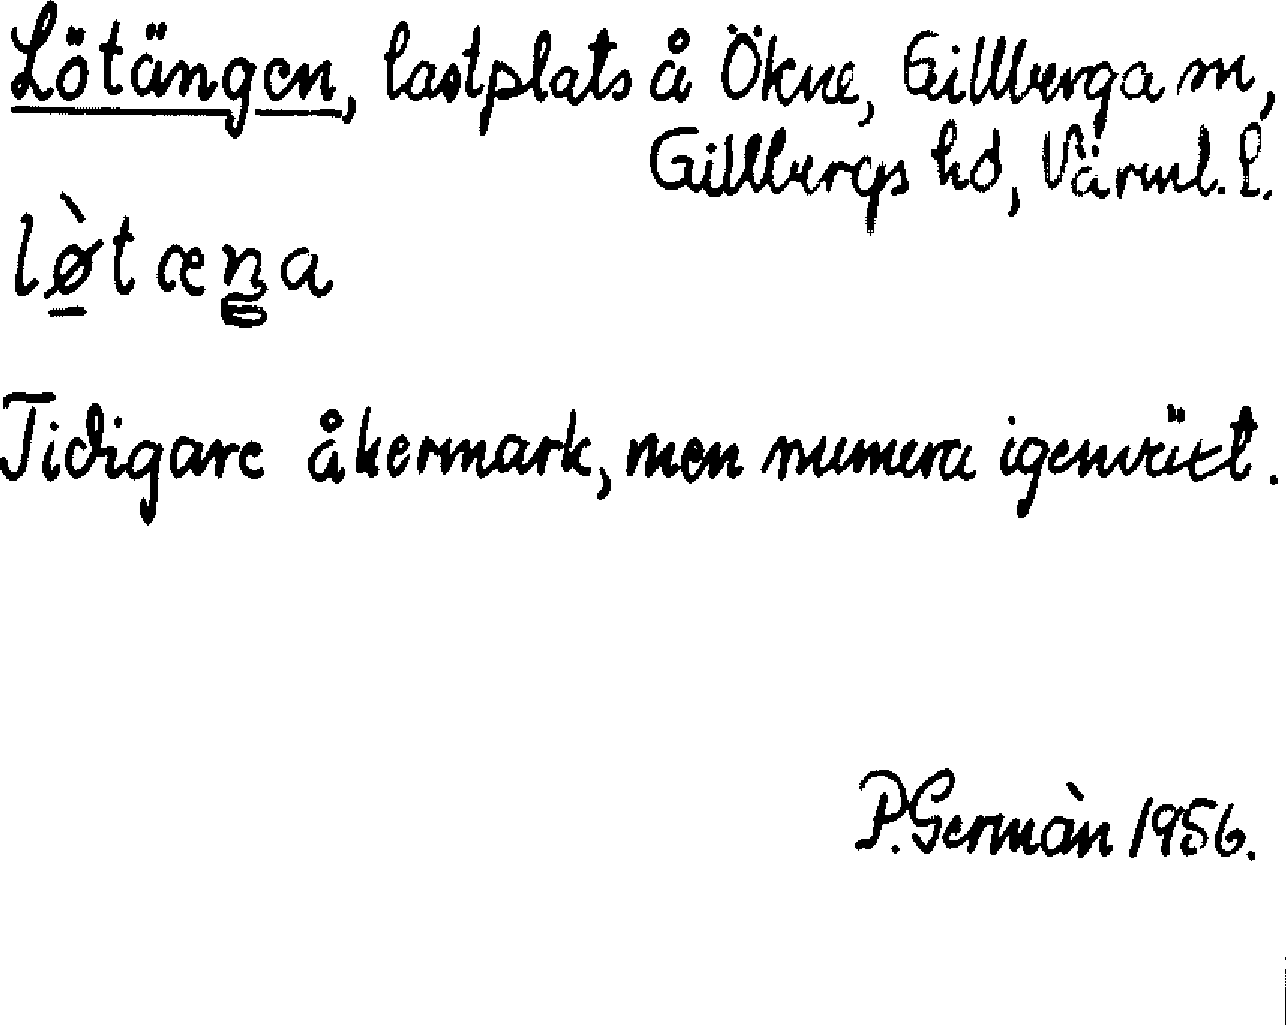 Lötängen, lastplats å Ökne, Gillberga sn,
Gillbergs hd, Värml. l.
lø̀tæŋa
Tidigare åkermark, men numera igenväxt.
P. Germàn 1956.